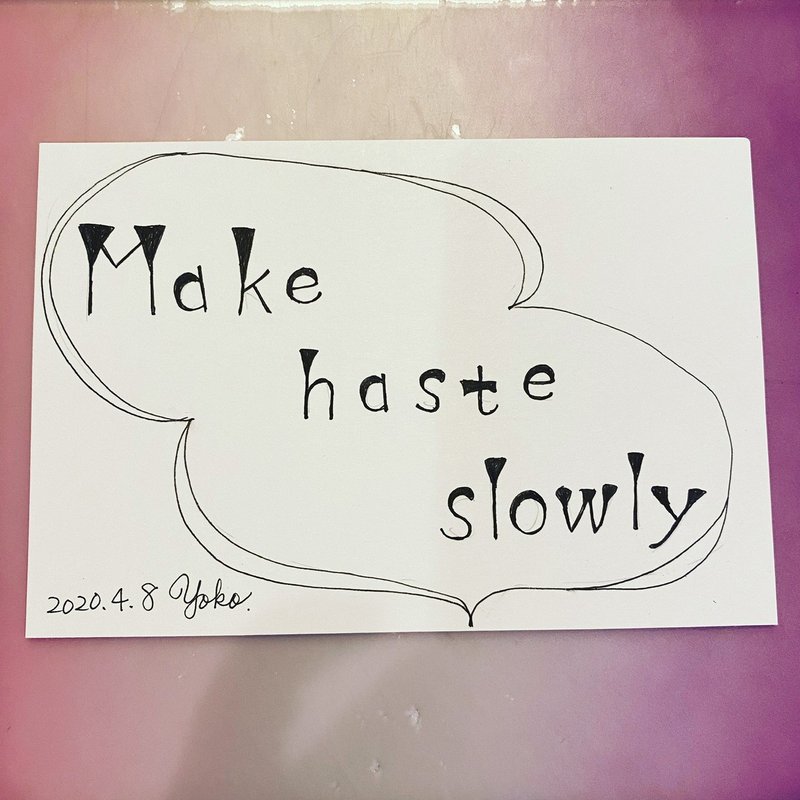 Make
haste
slowly
2020.4.8 Yoko.